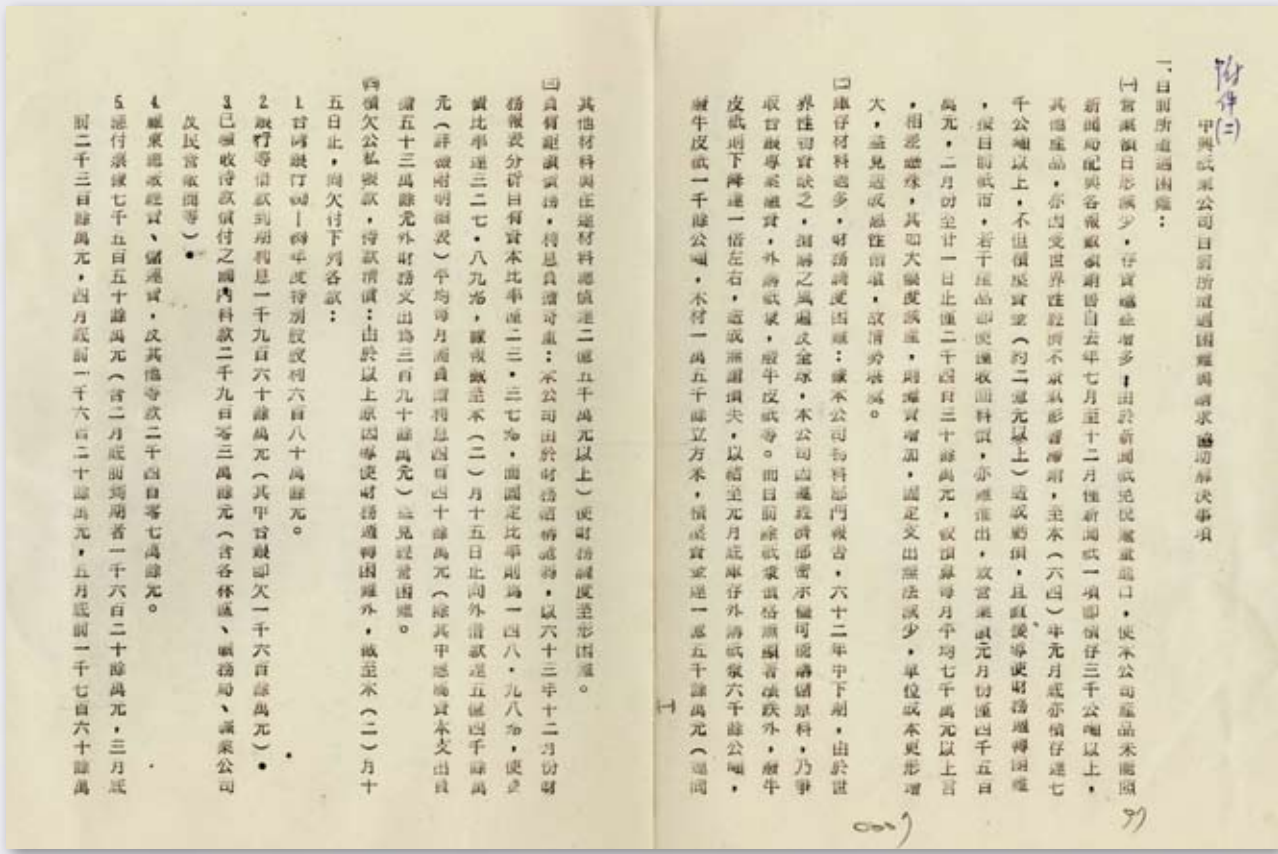 附件(二)
中興紙業公司目前所遭遇困難與請求協助解決事項
一、目前所遭遇困難：
(一)營業額日形減少，存貨遽益增多：由於新聞紙免稅進口，使本公司產品未能照
新聞局配與各報數額銷售自去年七月至十二月僅新聞紙一項即積存三千公噸以上，
其他產品，亦因受世界性經濟不景氣影響滯銷，至本（六四）年元月底亦積存達七
千公噸以上，不但積壓資金（約二億元以上）造成虧損，且直接導使財務週轉困難
，按目前紙市，若干產品即使僅收回料價，亦難推出，故營業額元月份僅四千五百
萬元，二月份至廿一日止僅二千四百三十餘萬元，較預算每月平均七千萬元以上言
，相差懸殊，其如大幅度減產，則滯貨增加，固定支出無法減少，單位成本更形增
大，益見造成惡性循環，故情勢堪虞。
(二)庫存材料過多，財務調度困難：據本公司物料部門報告，六十二年中下期，由於世
界性物資缺乏，搶購之風遍及全球，本公司亦遵經濟部密示儘可能購儲原料，乃爭
取台銀專案融資，外購紙漿，廢牛皮紙等。而目前除紙漿價格無顯著漲跌外，廢牛
皮紙則下降達一倍左右，造成無謂損失，以結至元月底庫存外購紙漿六千餘公噸，
廢牛皮紙一千餘公噸，木材一萬五千餘立方米，積壓資金達一億五千餘萬元（連同
其他材料與在途材料總值達二億五千萬元以上）使財務調度至形困難。
(三)負有鉅額債務，利息負擔奇重：本公司由於財務結構脆弱，以六十三年十二月份財
務報表分析自有資本比率僅二三．三七％，而固定比率則為一四八．九八％，使負
債比率達三二七．八九％，據報截至本（二）月十五日止向外借款達五億四千餘萬
元（詳據附明細表）平均每月需負擔利息四百四十餘萬元（除其中應屬資本支出負
擔五十三萬餘元外財務支出為三百九十餘萬元）益見經營困難。
(四)積欠公私帳款，待款清償：由於以上原因導使財務週轉困難外，截至本（二）月十
五日止，尚欠付下列各款：
1.台灣銀行年度特別股股利六百八十萬餘元。
2.銀行等借款到期利息一千九百六十餘萬元（其中台銀即欠一千六百餘萬元）。
3.已驗收待款償付之國內料款二千九百零三萬餘元（含各林區、礦務局、鹼業公司
及民營廠商等）。
4.羅東總廠經費、儲運費，及其他等款二千四百零七萬餘元。
5.應付票據七千五百五十餘萬元（含二月底前到期者一千六百二十餘萬元，三月底
前二千三百餘萬元，四月底前一千六百二十餘萬元，五月底前一千七百六十餘萬